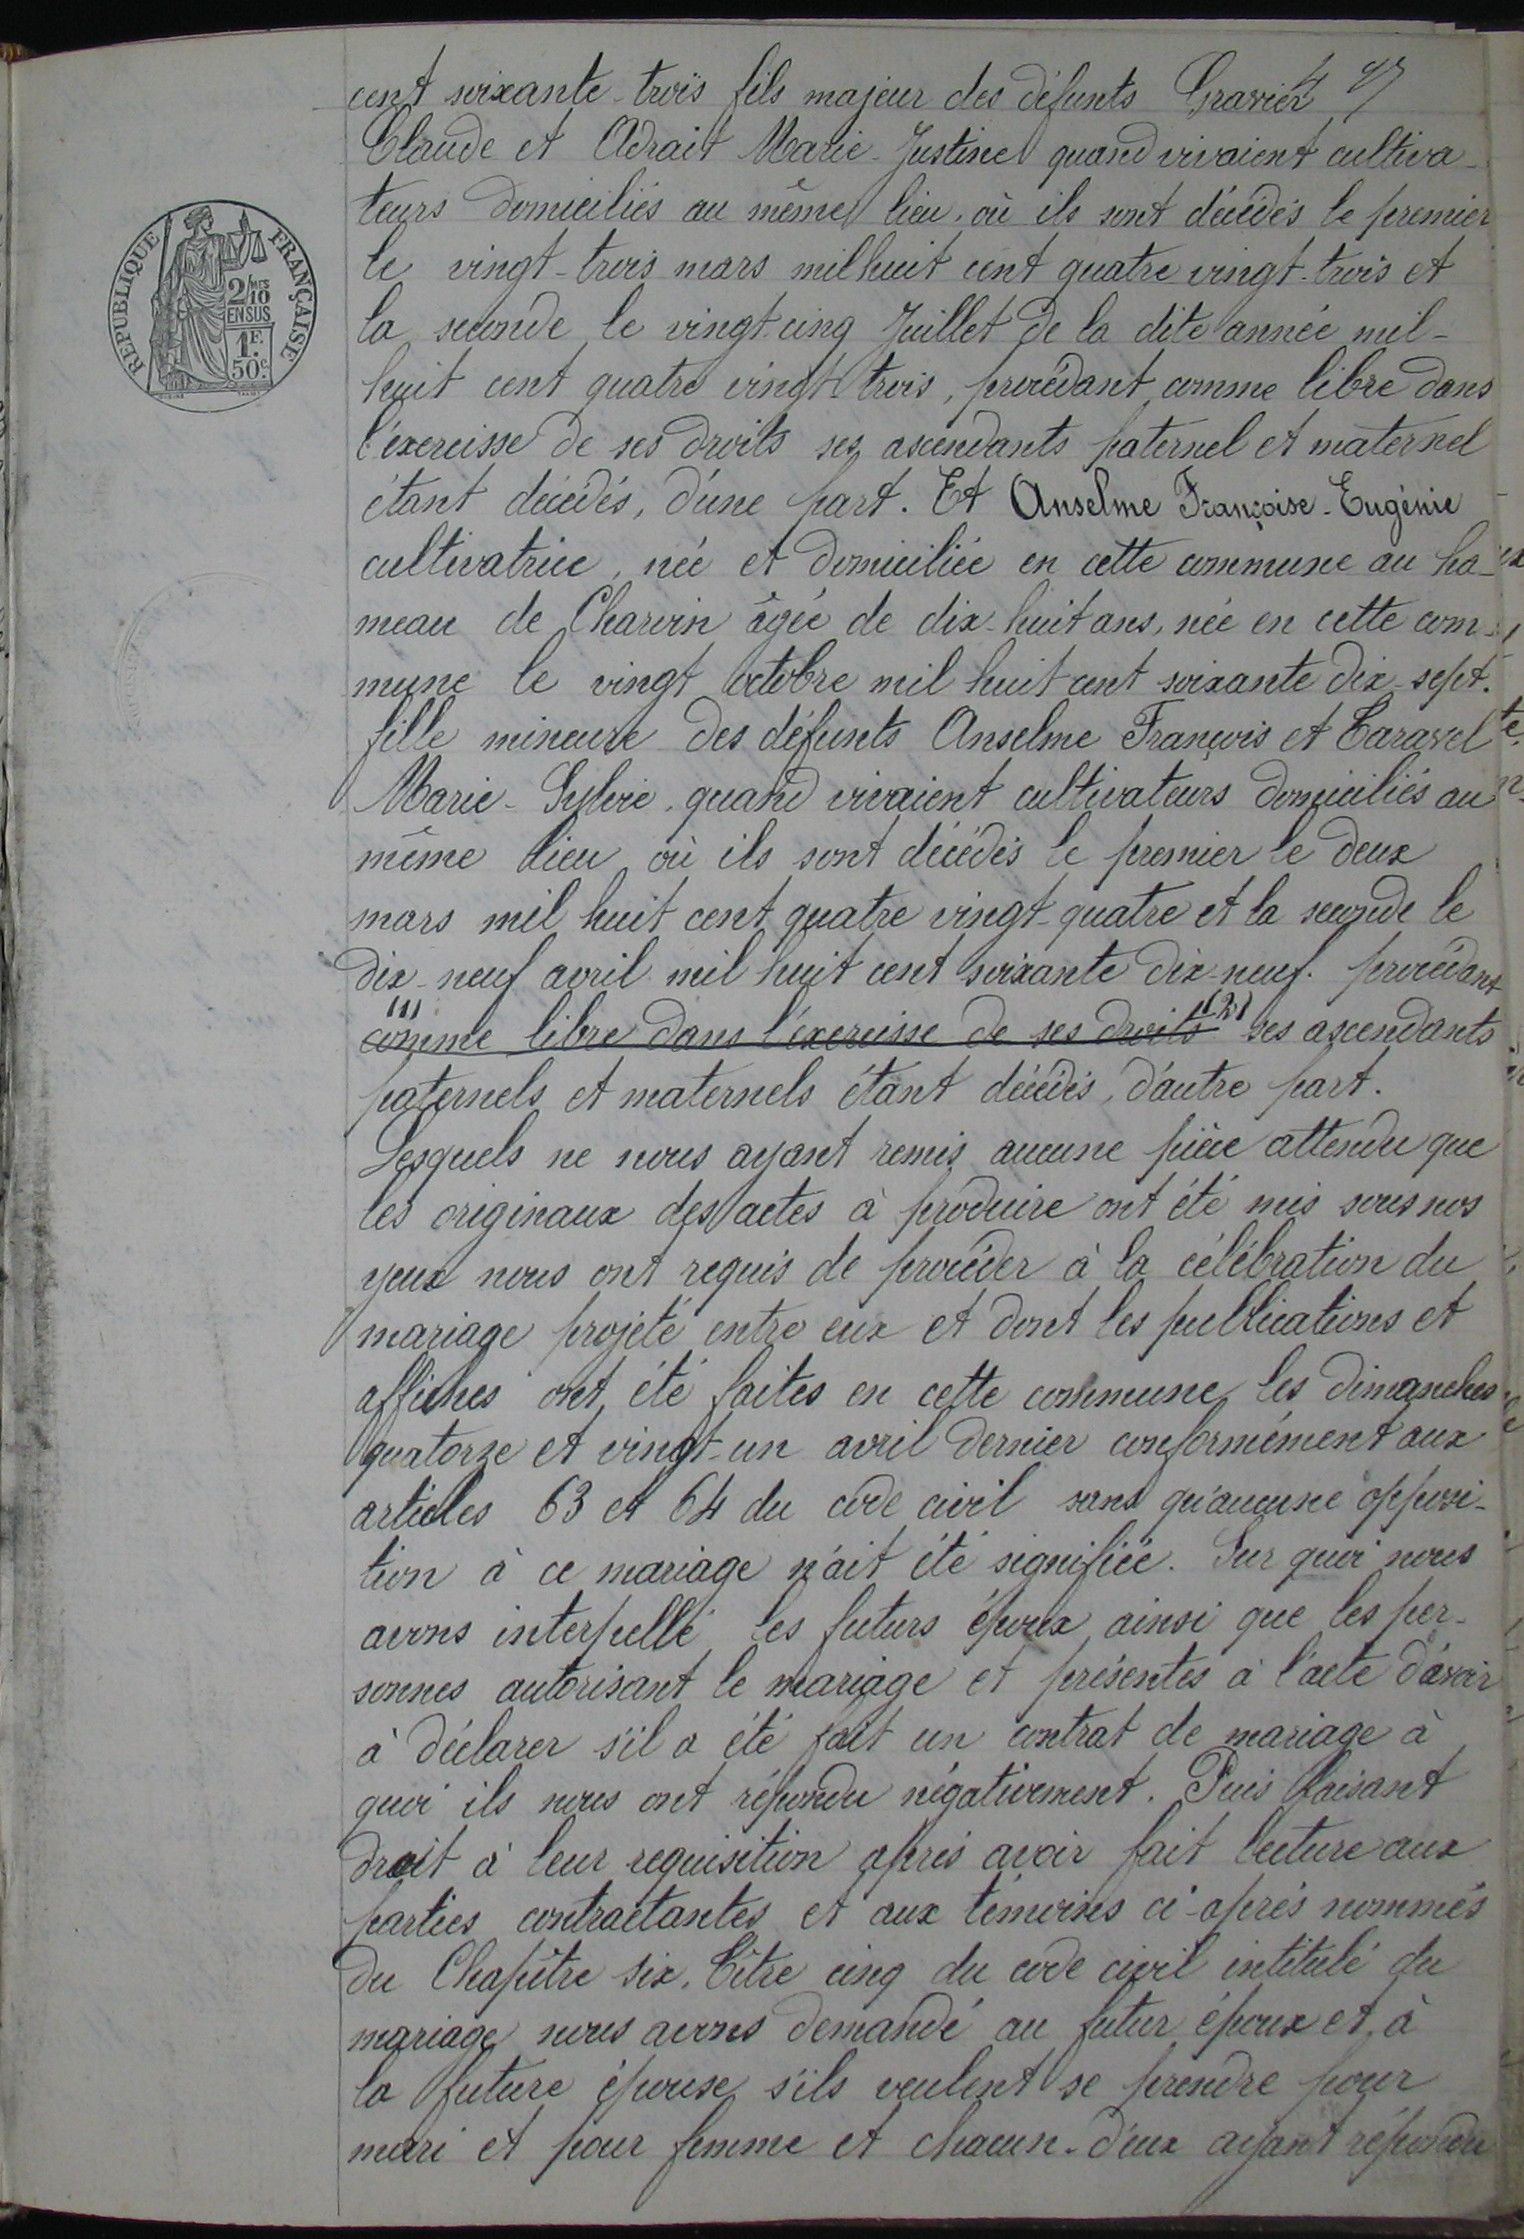 cent soixante-trois fils majeur des défunts Gravier
Claude et Adrait Marie-Justine quand vivaient cultiva-
teurs domiciliés au même lieu, où ils sont décédés le premier
le vingt-trois mars mil huit cent quatre vingt-trois et
la seconde le vingt-cinq Juillet de la dite année mil-
huit cent quatre vingt trois, procédant comme libre dans
l'exercisse de ses droits ses ascendants paternel et maternel
étant décédés, d'une part. Et Anselme Françoise-Eugénie
cultivatrice, née et domiciliée en cette commune au ha-
meau de Charvin âgée de dix-huit ans, née en cette com-
mune le vingt octobre mil huit cent soixante dix-sept.
fille mineure des défunts Anselme François et Caravel
Marie-Sylvie, quand vivaient cultivateurs domiciliés au
même lieu où ils sont décédés le premier le deux
mars mil huit cent quatre vingt-quatre et la seconde le
dix-neuf avril mil huit cent soixante dix-neuf. procédant
(1) comme libre dans l'exercisse de ses droits (2) ses ascendants
paternels et maternels étant décédés, d'autre part.
Lesquels ne nous ayant remis aucune pièce attendu que
les originaux des actes à produire ont été mis sous nos
yeux nous ont requis de procéder à la célébration du
mariage projeté entre eux et dont les publications et
affiches ont été faites en cette commune les dimanches
quatorze et vingt-un avril dernier conformément aux
articles 63 et 64 du code civil sans qu'aucune opposi-
tion à ce mariage n'ait été signifiée. Sur quoi nous
avons interpellé les futurs époux ainsi que les per-
sonnes autorisant le mariage et présentes à l'acte d'avoir
à déclarer s'il a été fait un contrat de mariage à
quoi ils nous ont répondu négativement. Puis faisant
droit à leur requisition après avoir fait lecture aux
parties contractantes et aux témoins ci-après nommés
du Chapitre six. Titre cinq du code civil intitulé du
mariage nous avons demandé au futur époux et à
la future épouse s'ils veulent se prendre pour
mari et pour femme et chacun-d'eux ayant répondu
RÉPUBLIQUE FRANÇAISE
2/10 MES
EN SUS
1F.
50c.